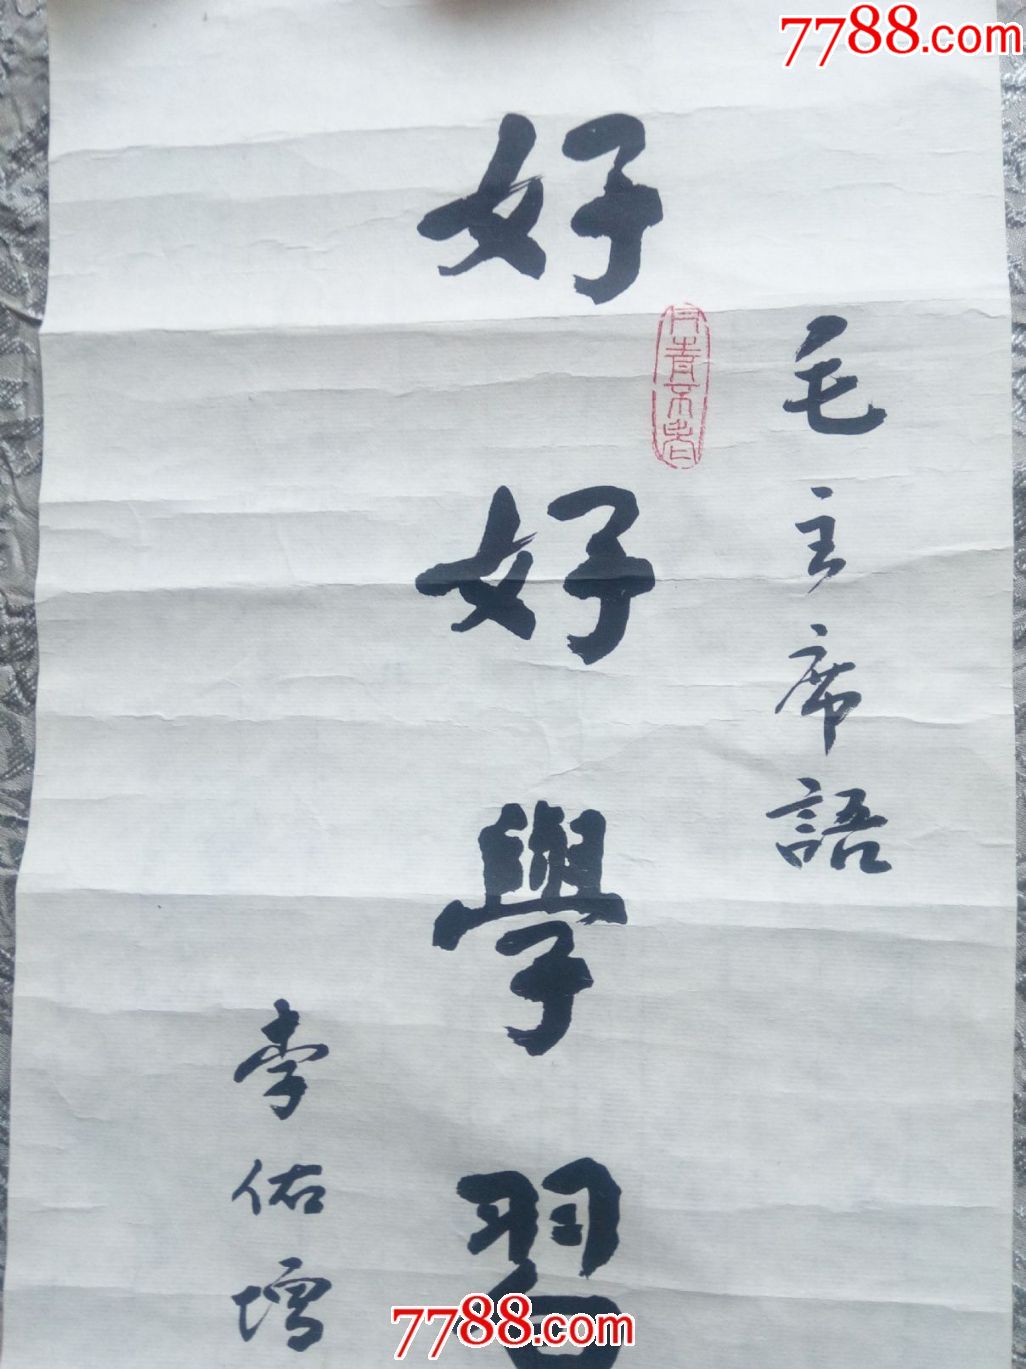 7788.com
毛主席語
好好學習
丹青不老
李佑增
7788.com